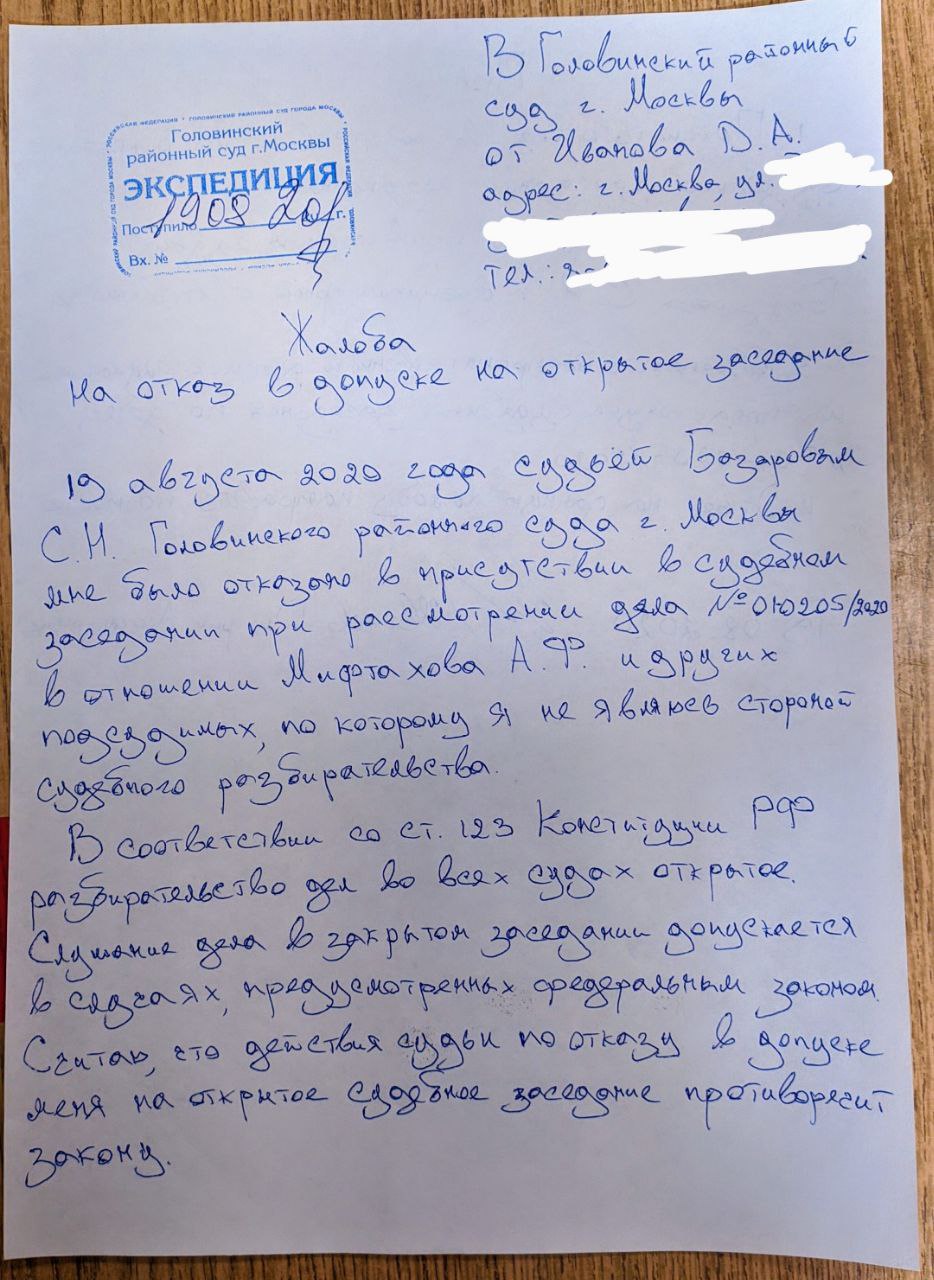 В Головинский районный
суд г. Москвы
от Иванова Д.А.
адрес: г. Москва, ул.
тел.:
Головинский
районный суд г.Москвы
ЭКСПЕДИЦИЯ
Поступило 19 08 20 г.
Вх. №
Жалоба
на отказ в допуске на открытое заседание
19 августа 2020 года судьёй Базаровым
С.Н. Головинского районного суда г. Москвы
мне было отказано в присутствии в судебном
заседании при рассмотрении дела №010205/2020
в отношении Мифтахова А.Ф. и других
подсудимых, по которому я не являюсь стороной
судебного разбирательства.
В соответствии со ст. 123 Конституции РФ
разбирательство дел во всех судах открытое.
Слушание дела в закрытом заседании допускается
в случаях, предусмотренных федеральным законом.
Считаю, что действия судьи по отказу в допуске
меня на открытое судебное заседание противоречит
закону.